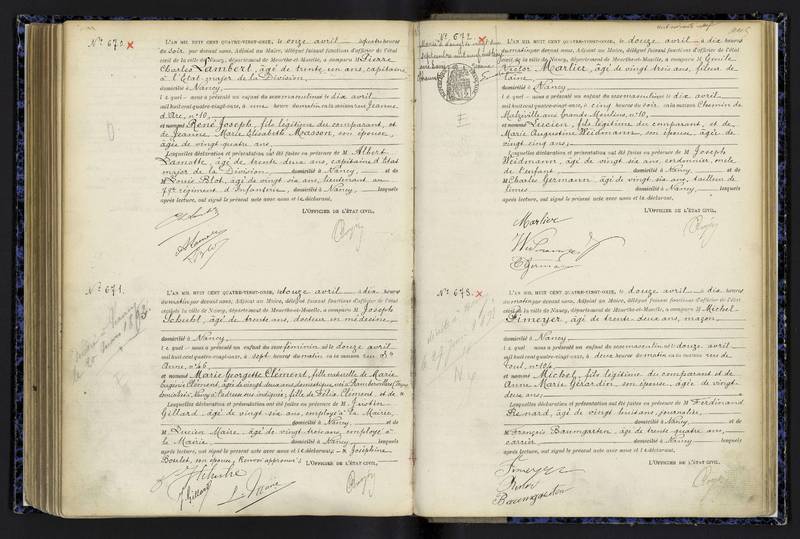 N° 670.
L'AN MIL HUIT CENT QUATRE-VINGT-ONZE, le onze avril à quatre heures
du soir par devant nous, Adjoint au Maire, délégué faisant fonctions d'officier de l'état
civil de la ville de Nancy, département de Meurthe-et-Moselle, a comparu M. Pierre
Charles Lambert, âgé de trente un ans, capitaine
à l'État major de la Division,
domicilié à Nancy,
lequel nous a présenté un enfant du sexe masculin né le dix avril
mil huit cent quatre-vingt-onze, à une heure du matin en sa maison rue Jeanne
d'Arc, n° 10,
et nommé René Joseph, fils légitime du comparant, et
de Jeanne Marie Elisabeth Masson, son épouse,
âgée de vingt quatre ans,
Lesquelles déclaration et présentation ont été faites en présence de M. Albert
Lamotte, âgé de trente deux ans, capitaine d'État
major de la Division, domicilié à Nancy, et de
M. Louis Blot, âgé de vingt six ans, lieutenant au
79e régiment d'Infanterie, domicilié à Nancy, lesquels
après lecture, ont signé le présent acte avec nous et le déclarant,
L'OFFICIER DE L'ÉTAT CIVIL,
N° 671.
L'AN MIL HUIT CENT QUATRE-VINGT-ONZE, le douze avril à dix heures
du matin par devant nous, Adjoint au Maire, délégué faisant fonctions d'officier de l'état
civil de la ville de Nancy, département de Meurthe-et-Moselle, a comparu M. Joseph
Schuhl, âgé de trente ans, docteur en médecine
domicilié à Nancy,
lequel nous a présenté un enfant du sexe féminin né le douze avril
mil huit cent quatre-vingt-onze, à sept heures du matin en sa maison rue Ste
Anne, n° 46
et nommé Marie Georgette Clément, fille naturelle de Marie
Eugénie Clément, âgée de vingt deux ans, domestique, née à
domiciliée à Nancy à l'adresse sus indiquée, fille de Félix Clément et de
Lesquelles déclaration et présentation ont été faites en présence de M. Justin
Gillard, âgé de vingt six ans, employé à la Mairie,
domicilié à Nancy, et de
M. Lucien Maire, âgé de vingt trois ans, employé à
la Mairie domicilié à Nancy lesquels
après lecture, ont signé le présent acte avec nous et le déclarant; Joséphine
Boulet, son épouse, Renvoi approuvé
L'OFFICIER DE L'ÉTAT CIVIL,
Gillard
L. Maire
N° 672.
L'AN MIL HUIT CENT QUATRE-VINGT-ONZE, le douze avril à dix heures
du matin par devant nous, Adjoint au Maire, délégué faisant fonctions d'officier de l'état
civil de la ville de Nancy, département de Meurthe-et-Moselle, a comparu M. Emile
Victor Martier, âgé de vingt trois ans, fileur de
laine,
domicilié à Nancy
lequel nous a présenté un enfant du sexe masculin né le dix avril
mil huit cent quatre-vingt-onze, à cinq heures du soir en sa maison Chemin de
Malzéville aux Grands Moulins, n° 10,
et nommé Lucien, fils légitime du comparant, et de
Marie Augustine Weidmann, son épouse, âgée de
vingt cinq ans,
Lesquelles déclaration et présentation ont été faites en présence de M. Joseph
Weidmann, âgé de vingt six ans, cordonnier, oncle
de l'enfant domicilié à Nancy, et de
M. Charles Germann, âgé de vingt six ans, tailleur de
limes domicilié à Nancy lesquels
après lecture, ont signé le présent acte avec nous et le déclarant,
L'OFFICIER DE L'ÉTAT CIVIL,
Martier
Germann
N° 673.
L'AN MIL HUIT CENT QUATRE-VINGT-ONZE, le douze avril à dix heures
du matin par devant nous, Adjoint au Maire, délégué faisant fonctions d'officier de l'état
civil de la ville de Nancy, département de Meurthe-et-Moselle, a comparu M. Michel
Dimeyer, âgé de trente-deux ans, maçon,
domicilié à Nancy
lequel nous a présenté un enfant du sexe masculin né le douze avril
mil huit cent quatre-vingt-onze, à deux heures du matin en sa maison rue de
Toul, n° 104
et nommé Michel, fils légitime du comparant et de
Anne Marie Gérardin, son épouse, âgée de vingt-
deux ans,
Lesquelles déclaration et présentation ont été faites en présence de M. Ferdinand
Pienard, âgé de vingt huit ans, journalier,
domicilié à Nancy, et de
M. François Baumgarten, âgé de trente quatre ans,
carrier domicilié à Nancy lesquels
après lecture, ont signé le présent acte avec nous et le déclarant,
L'OFFICIER DE L'ÉTAT CIVIL,
Baumgarten